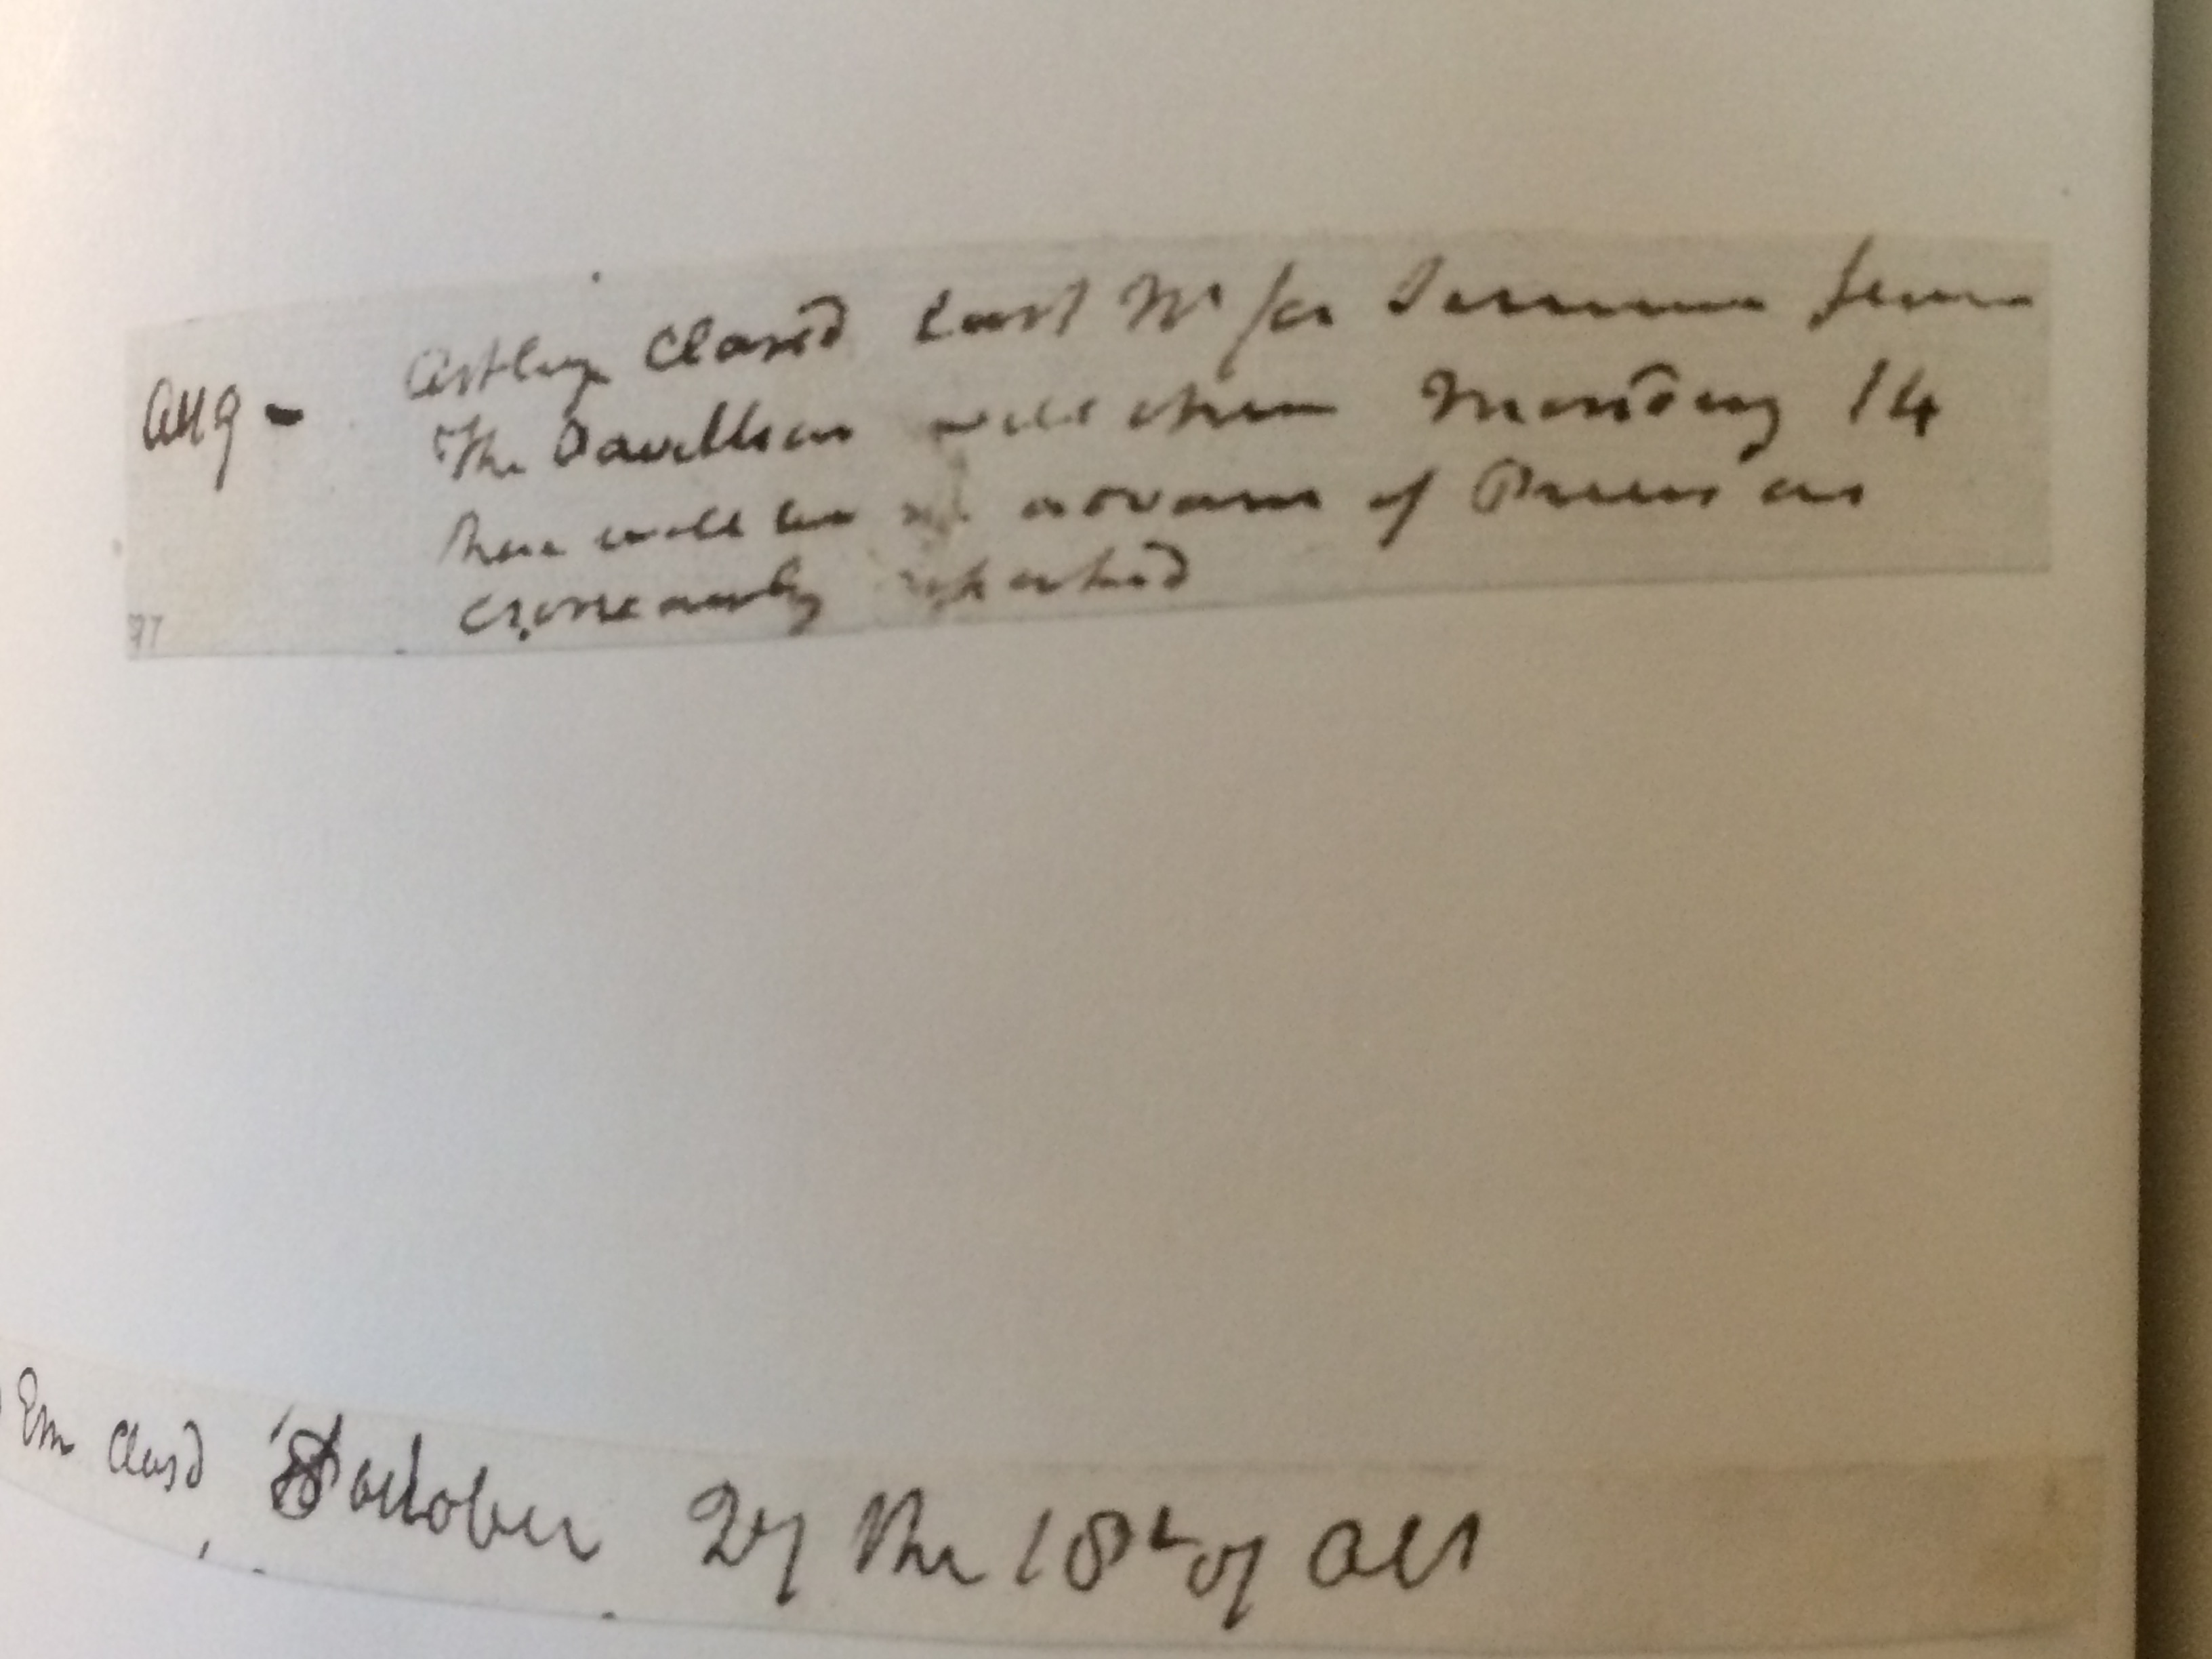 Aug - Astleys Closed Last Nt for Summer season
The Pavillion will open Monday 14
there will be no advance of Prices as
eroneously reported
97
Em Clos'd October 27 the 18th of Oct